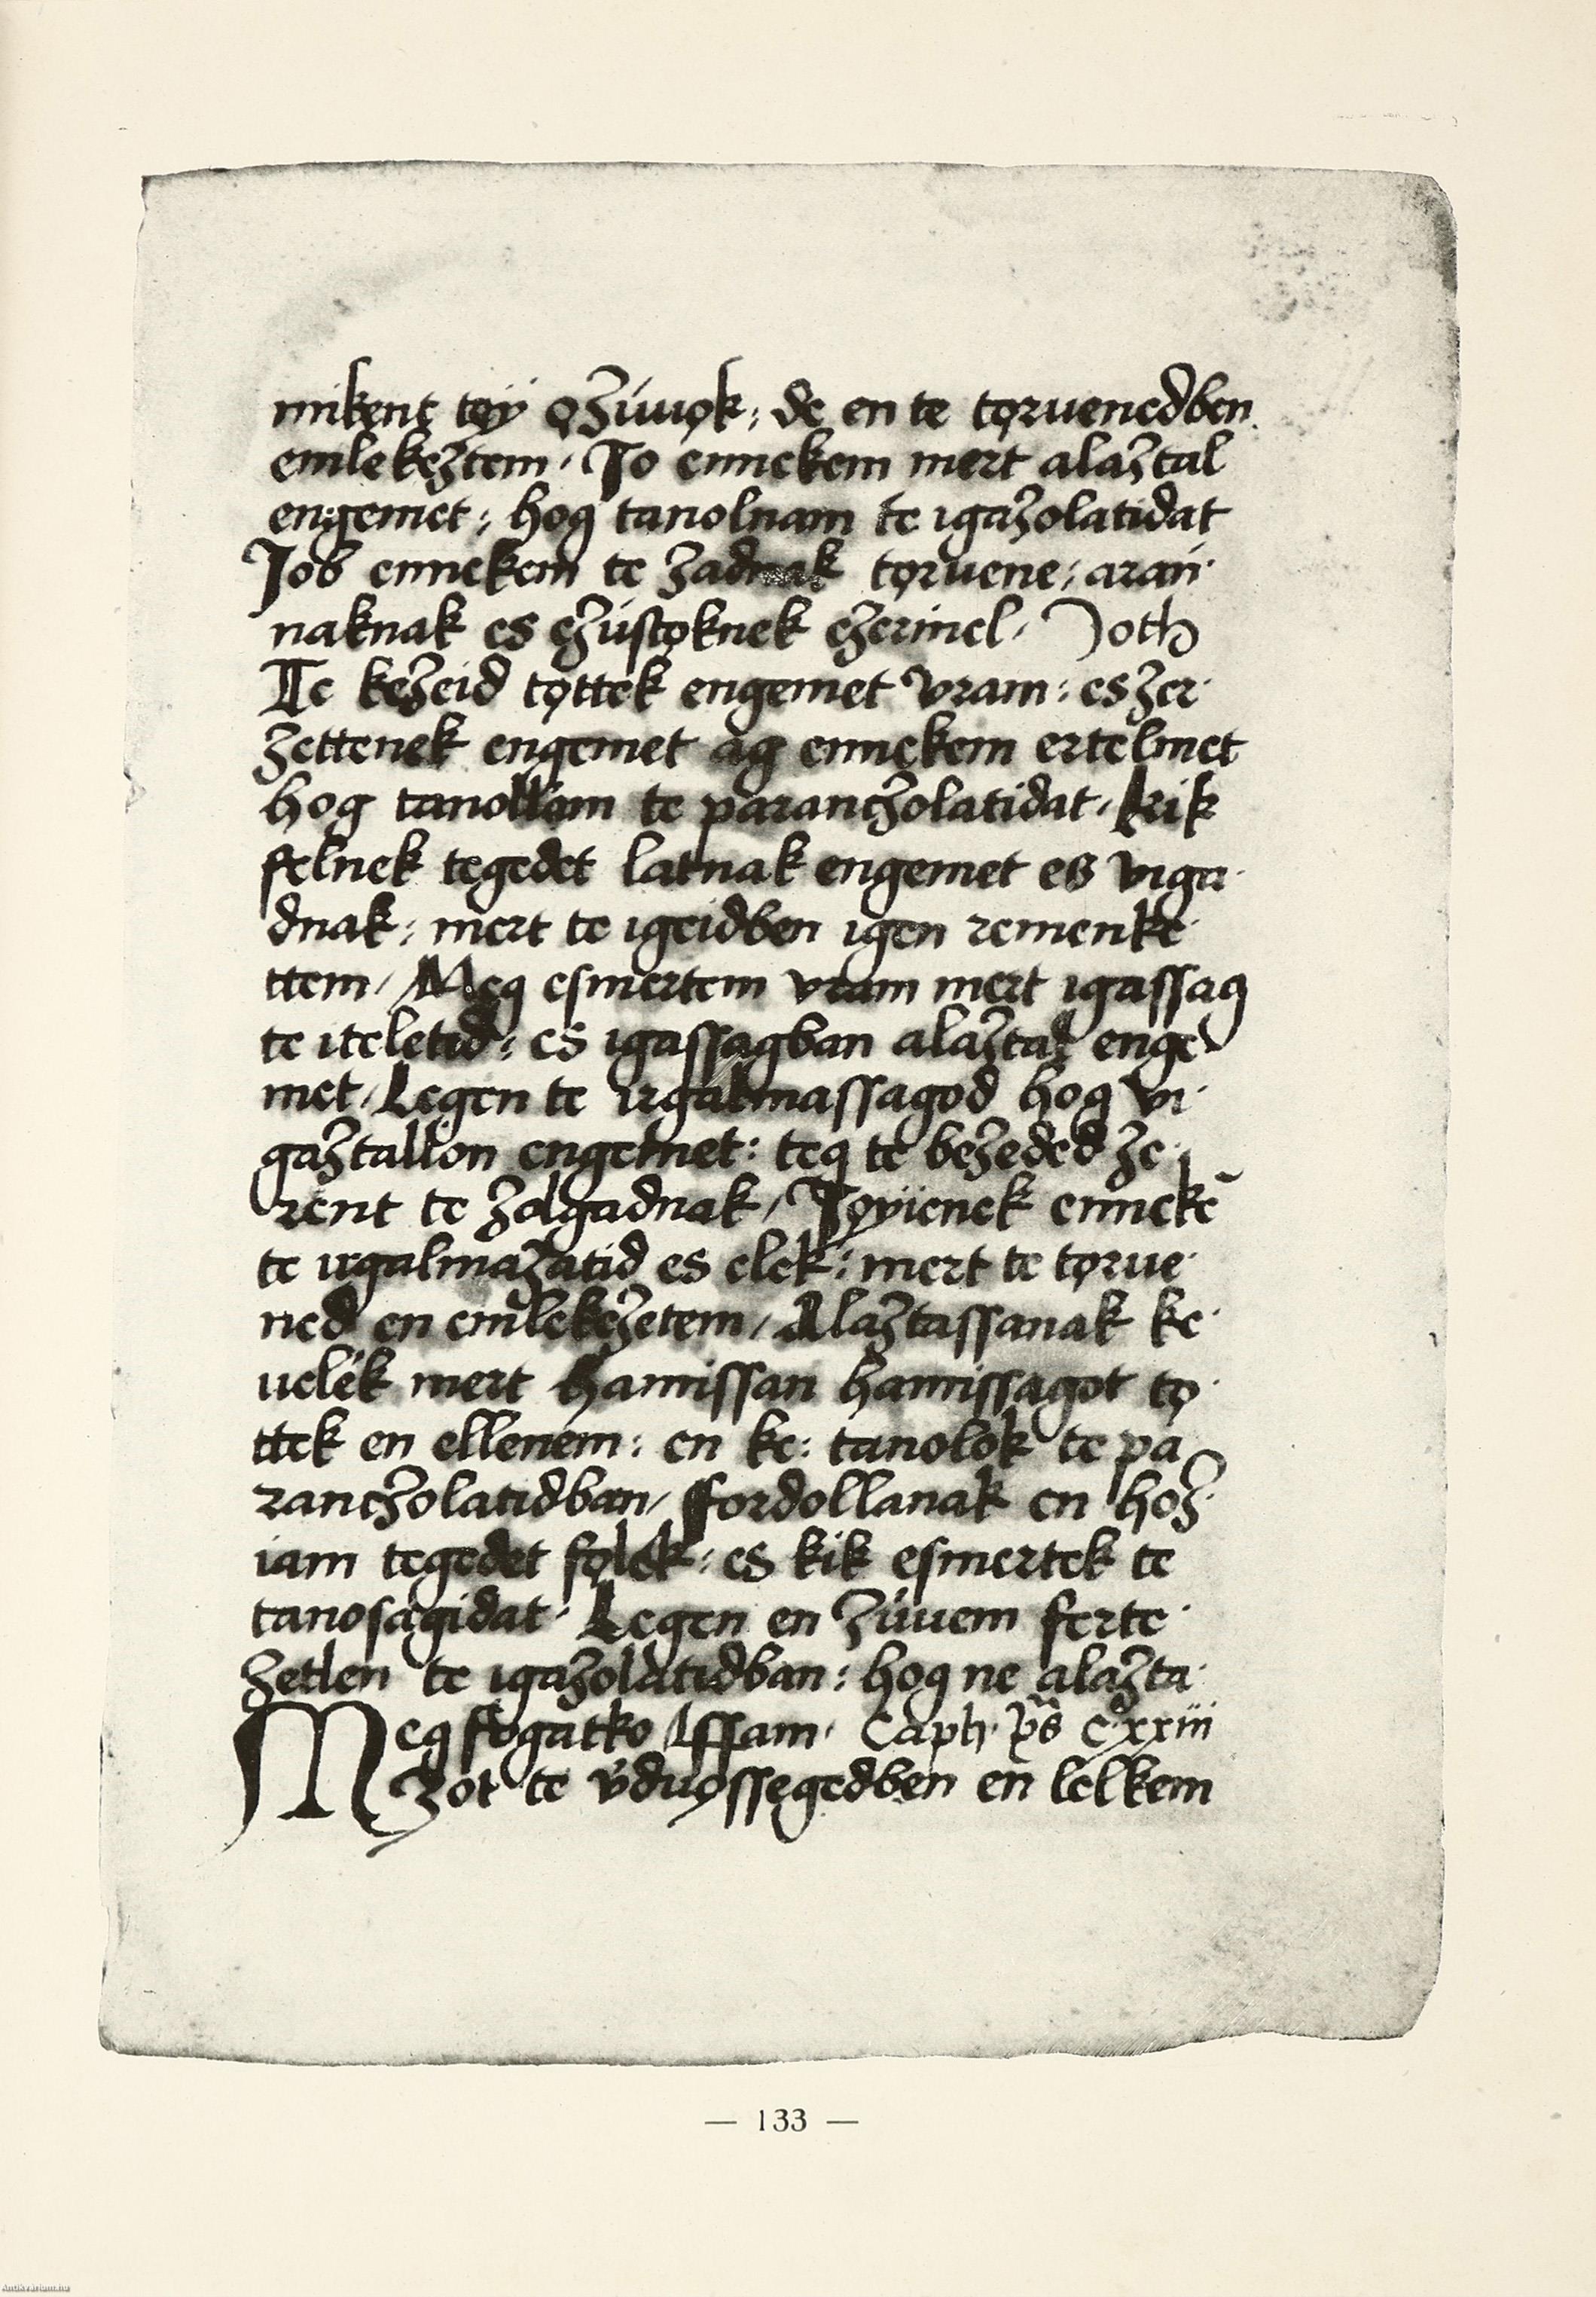 mikent tǫÿ ǫʒi̋uǫk: de en te tǫruenedben
emlekeʒtem / Io ennekem mert alaʒtal
engemet: hog tanolnam te igaʒolatidat
Iob ennekem te ʒadnak tǫruene: aran·
naknak es eʒu̇stǫknek eʒerinel / Joth
Te keʒeid tǫttek engemet vram: es ʒer·
ʒettenek engemet ag ennekem ertelmet
hog tanollam te paranc̨ʒolatidat / kik
felnek tegedet latnak engemet es viga·
dnak: mert te igeidben igen remenke·
ttem / Meg esmertem vram mert igassag
te iteletid: es igassagban alaʒtal enge
met / Legen te irgalmassagod hog vi·
gaʒtallon engemet: teg te beʒeded ʒe·
rent te ʒolgadnak / Iǫÿienek enneke̅
te irgalmaʒatid es elek: mert te tǫrue·
ned en emlekeʒetem / Alaʒtassanak ke·
uelek mert hamissan hamissagot tǫ·
ttek en ellenem: en ke: tanolok te pa
ranc̨ʒolatidban / ffordollanak en hoʒ·
iam tegedet fǫlek: es kik esmertek te
tanosagidat· Legen en ʒu̇uem ferte·
ʒetlen te igaʒolatidban: hog ne alaʒta·
Meg fogatko issam· Caph· p̅s c·xxiii
ʒot te v̇duǫssegedben en lelkem
— 133 —
Antikvarium.hu